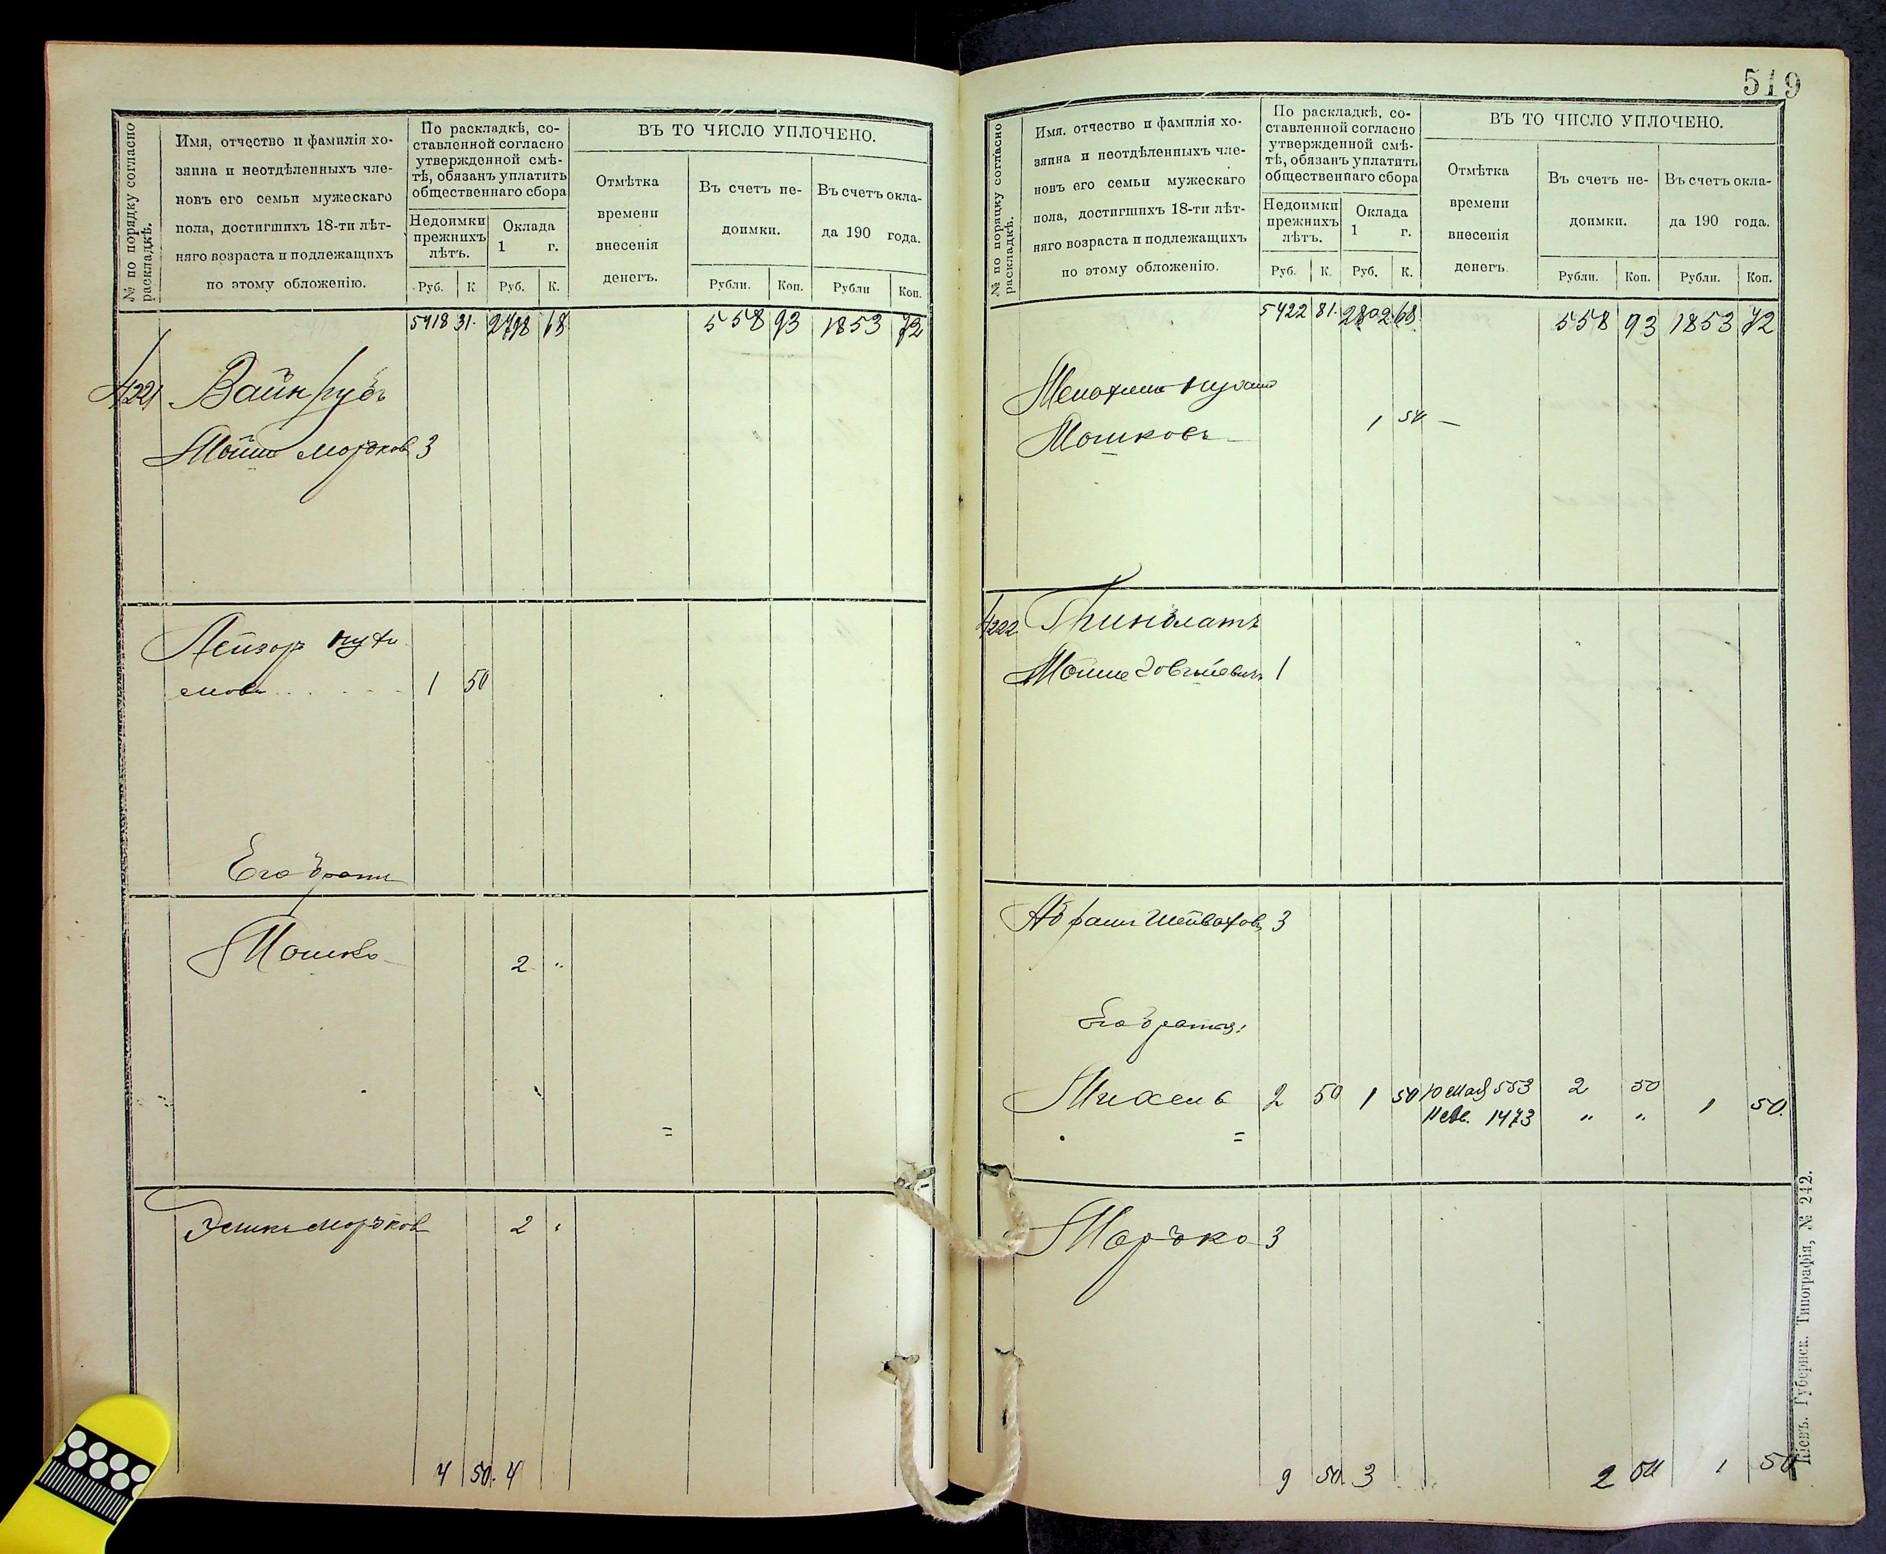 № по порядку согласно раскладкѣ.
Имя, отчество и фамилія хо-
зяина и неотдѣленныхъ чле-
новъ его семьи мужескаго
пола, достигшихъ 18-ти лѣт-
няго возраста и подлежащихъ
по этому обложенію.
По раскладкѣ, со-
ставленной согласно
утвержденной смѣ-
тѣ, обязанъ уплатить
общественнаго сбора
Недоимки прежнихъ лѣтъ.
Оклада 1 г.
Руб. К. Руб. К.
ВЪ ТО ЧИСЛО УПЛОЧЕНО.
Отмѣтка
времени
внесенія
денегъ.
Въ счетъ не-
доимки.
Въ счетъ окла-
да 190 года.
Рубли. Коп. Рубли Коп.
5418 31. 2798 68 558 93 1853 72
4221 Вайнрубъ
Мойше Мордков 3
Лейзор
1 50
Его братъ
Мошко 2 "
=
Мордков 2 "
4 50. 4
519
№ по порядку согласно раскладкѣ.
Имя, отчество и фамилія хо-
зяина и неотдѣленныхъ чле-
новъ его семьи мужескаго
пола, достигшихъ 18-ти лѣт-
няго возраста и подлежащихъ
по этому обложенію.
По раскладкѣ, со-
ставленной согласно
утвержденной смѣ-
тѣ, обязанъ уплатить
общественнаго сбора
Недоимки прежнихъ лѣтъ.
Оклада 1 г.
Руб. К. Руб. К.
ВЪ ТО ЧИСЛО УПЛОЧЕНО.
Отмѣтка
времени
внесенія
денегъ.
Въ счетъ не-
доимки.
Въ счетъ окла-
да 190 года.
Рубли. Коп. Рубли. Коп.
5422 81. 2802 68 558 93 1853 72
Мошковъ 1 50
4222 Гринблатъ
Мошке 1
Абрамъ 3
Его братья:
Михель 2 50 1 50 10 Мая 553 2 50
1473 " " 1 50.
=
Мордко 3
9 50. 3 2 50 1 50
Кіевъ. Губернск. Типографія, № 242.